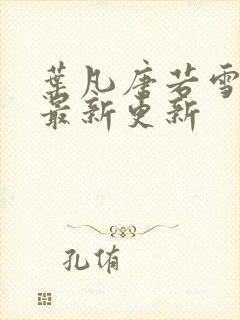 葉凡唐若雪
最新更新
孔侑